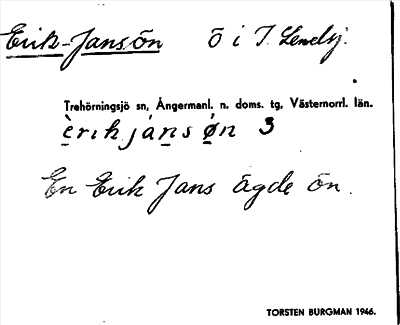 Erik-Jansön ö i T. Lemelsj.
Trehörningsjö sn, Ångermanl. n. doms. tg, Västernorrl. län.
èrik jánsǿn 3
En Erik Jans ägde ön.
TORSTEN BURGMAN 1946.